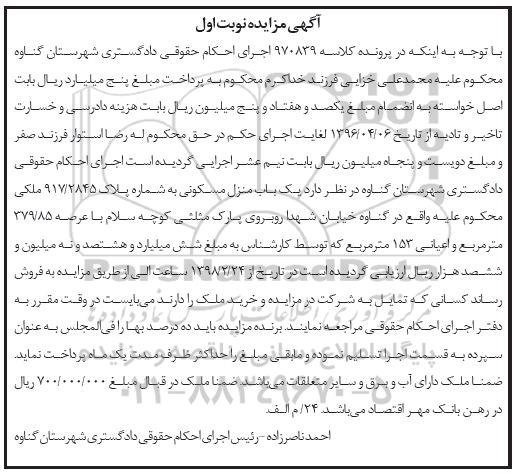 آگهی مزایده نوبت اول
با توجه به اینکه در پرونده کلاسه ۹۷۰۸۳۹ اجرای احکام حقوقی دادگستری شهرستان گناوه
محکوم علیه محمدعلی خزایی فرزند خداکرم محکوم به پرداخت مبلغ پنج میلیارد ریال بابت
اصل خواسته به انضمام مبلغ یکصد و هفتاد و پنج میلیون ریال بابت هزینه دادرسی و خسارت
تاخیر و تادیه از تاریخ ۱۳۹۶/۰۴/۰۶ لغایت اجرای حکم در حق محکوم له رضا استوار فرزند صفر
و مبلغ دویست و پنجاه میلیون ریال بابت نیم عشر اجرایی گردیده است اجرای احکام حقوقی
دادگستری شهرستان گناوه در نظر دارد یک باب منزل مسکونی به شماره پلاک ۹۱۷/۲۸۴۵ ملکی
محکوم علیه واقع در گناوه خیابان شهدا روبروی پارک مثلثی کوچه سلام با عرصه ۳۷۹/۸۵
مترمربع و اعیانی ۱۵۳ مترمربع که توسط کارشناس به مبلغ شش میلیارد و هشتصد و نه میلیون و
ششصد هزار ریال ارزیابی گردیده است در تاریخ از ۱۳۹۸/۲/۲۴ ساعت الی از طریق مزایده به فروش
رساند کسانی که تمایل به شرکت در مزایده و خرید ملک را دارند می‌بایست در وقت مقرر به
دفتر اجرای احکام حقوقی مراجعه نمایند. برنده مزایده باید ده درصد بها را فی‌المجلس به عنوان
سپرده به قسمت اجرا تسلیم نموده و مابقی مبلغ را حداکثر ظرف مدت یک ماه پرداخت نماید.
ضمنا ملک دارای آب و برق و سایر متعلقات می‌باشد. ضمنا ملک در قبال مبلغ ۷۰۰/۰۰۰/۰۰۰ ریال
در رهن بانک مهر اقتصاد می‌باشد. ۲۴/ م الف.
احمد ناصرزاده - رئیس اجرای احکام حقوقی دادگستری شهرستان گناوه
پایگاه اطلاع رسانی مناقصه و مزایده
۰۲۱-۸۸۳۴۹۶۷۰-۵